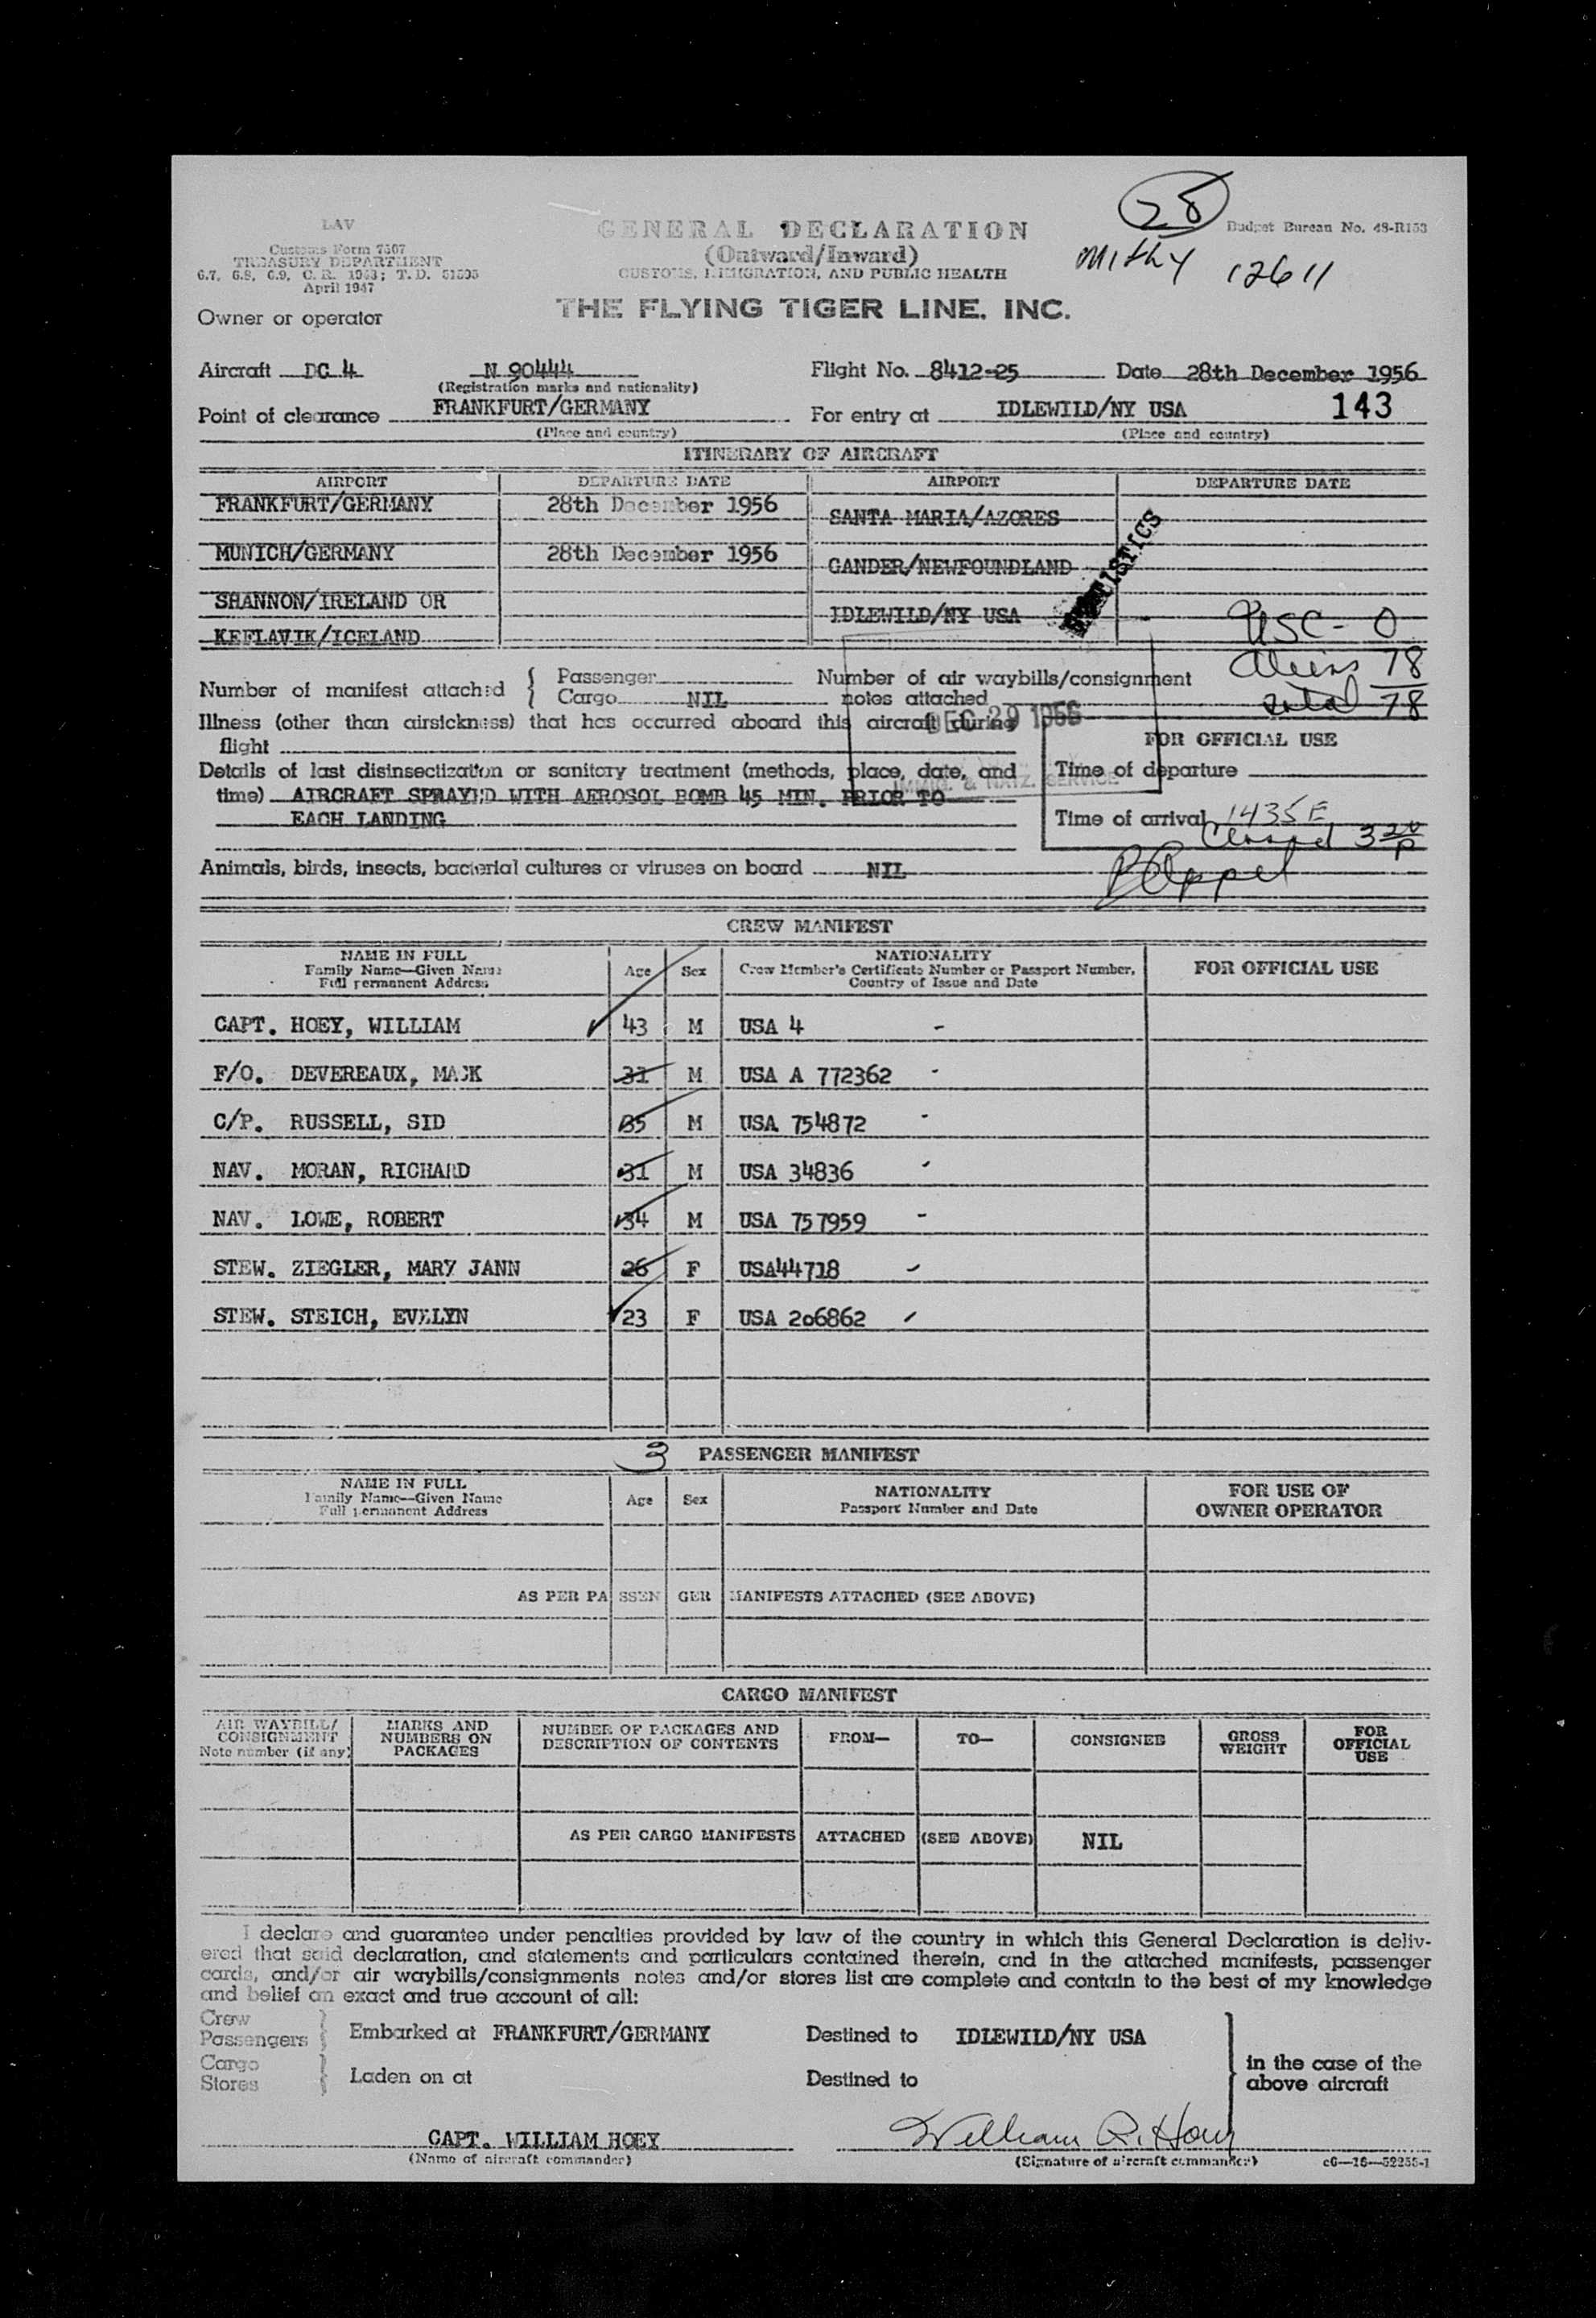 28
LAV
GENERAL DECLARATION
Budget Bureau No. 48-R153
Customs Form 7507
TREASURY DEPARTMENT
(Outward/Inward)
6.7, 6.8, 6.9, C. R. 1943; T. D. 51595
CUSTOMS, IMMIGRATION, AND PUBLIC HEALTH
12611
April 1947
Owner or operator
THE FLYING TIGER LINE, INC.
Aircraft DC 4 N 90444 Flight No. 8412-25 Date 28th December 1956
(Registration marks and nationality)
Point of clearance FRANKFURT/GERMANY For entry at IDLEWILD/NY USA 143
(Place and country) (Place and country)
ITINERARY OF AIRCRAFT
AIRPORT DEPARTURE DATE AIRPORT DEPARTURE DATE
FRANKFURT/GERMANY 28th December 1956 SANTA MARIA/AZORES
MUNICH/GERMANY 28th December 1956 GANDER/NEWFOUNDLAND
STATISTICS
SHANNON/IRELAND OR IDLEWILD/NY USA
KEFLAVIK/ICELAND
USC - 0
Aliens 78
Total 78
Number of manifest attached { Passenger Number of air waybills/consignment
Cargo NIL notes attached
DEC 29 1956
Illness (other than airsickness) that has occurred aboard this aircraft during
flight
FOR OFFICIAL USE
Details of last disinsectization or sanitary treatment (methods, place, date, and
Time of departure
IMMIG. & NATZ. SERVICE
time) AIRCRAFT SPRAYED WITH AEROSOL BOMB 45 MIN. PRIOR TO
EACH LANDING
Time of arrival 1435E
Animals, birds, insects, bacterial cultures or viruses on board NIL
CREW MANIFEST
NAME IN FULL Age Sex NATIONALITY FOR OFFICIAL USE
Family Name—Given Name Crew Member's Certificate Number or Passport Number,
Full permanent Address Country of Issue and Date
CAPT. HOEY, WILLIAM 43 M USA 4 -
F/O. DEVEREAUX, MACK 31 M USA A 772362 -
C/P. RUSSELL, SID 35 M USA 754872 -
NAV. MORAN, RICHARD 31 M USA 34836
NAV. LOWE, ROBERT 34 M USA 757959 -
STEW. ZIEGLER, MARY JANN 26 F USA44718
STEW. STEICH, EVELYN 23 F USA 206862
3 PASSENGER MANIFEST
NAME IN FULL Age Sex NATIONALITY FOR USE OF
Family Name—Given Name Passport Number and Date OWNER OPERATOR
Full permanent Address
AS PER PASSENGER MANIFESTS ATTACHED (SEE ABOVE)
CARGO MANIFEST
AIR WAYBILL/ MARKS AND NUMBER OF PACKAGES AND FROM— TO— CONSIGNEE GROSS FOR
CONSIGNMENT NUMBERS ON DESCRIPTION OF CONTENTS WEIGHT OFFICIAL
Note number (if any) PACKAGES USE
AS PER CARGO MANIFESTS ATTACHED (SEE ABOVE) NIL
I declare and guarantee under penalties provided by law of the country in which this General Declaration is deliv-
ered that said declaration, and statements and particulars contained therein, and in the attached manifests, passenger
cards, and/or air waybills/consignments notes and/or stores list are complete and contain to the best of my knowledge
and belief an exact and true account of all:
Crew
Passengers } Embarked at FRANKFURT/GERMANY Destined to IDLEWILD/NY USA
Cargo
Stores } Laden on at Destined to
in the case of the
above aircraft
CAPT. WILLIAM HOEY William R. Hoey
(Name of aircraft commander) (Signature of aircraft commander) c6—16—52255-1